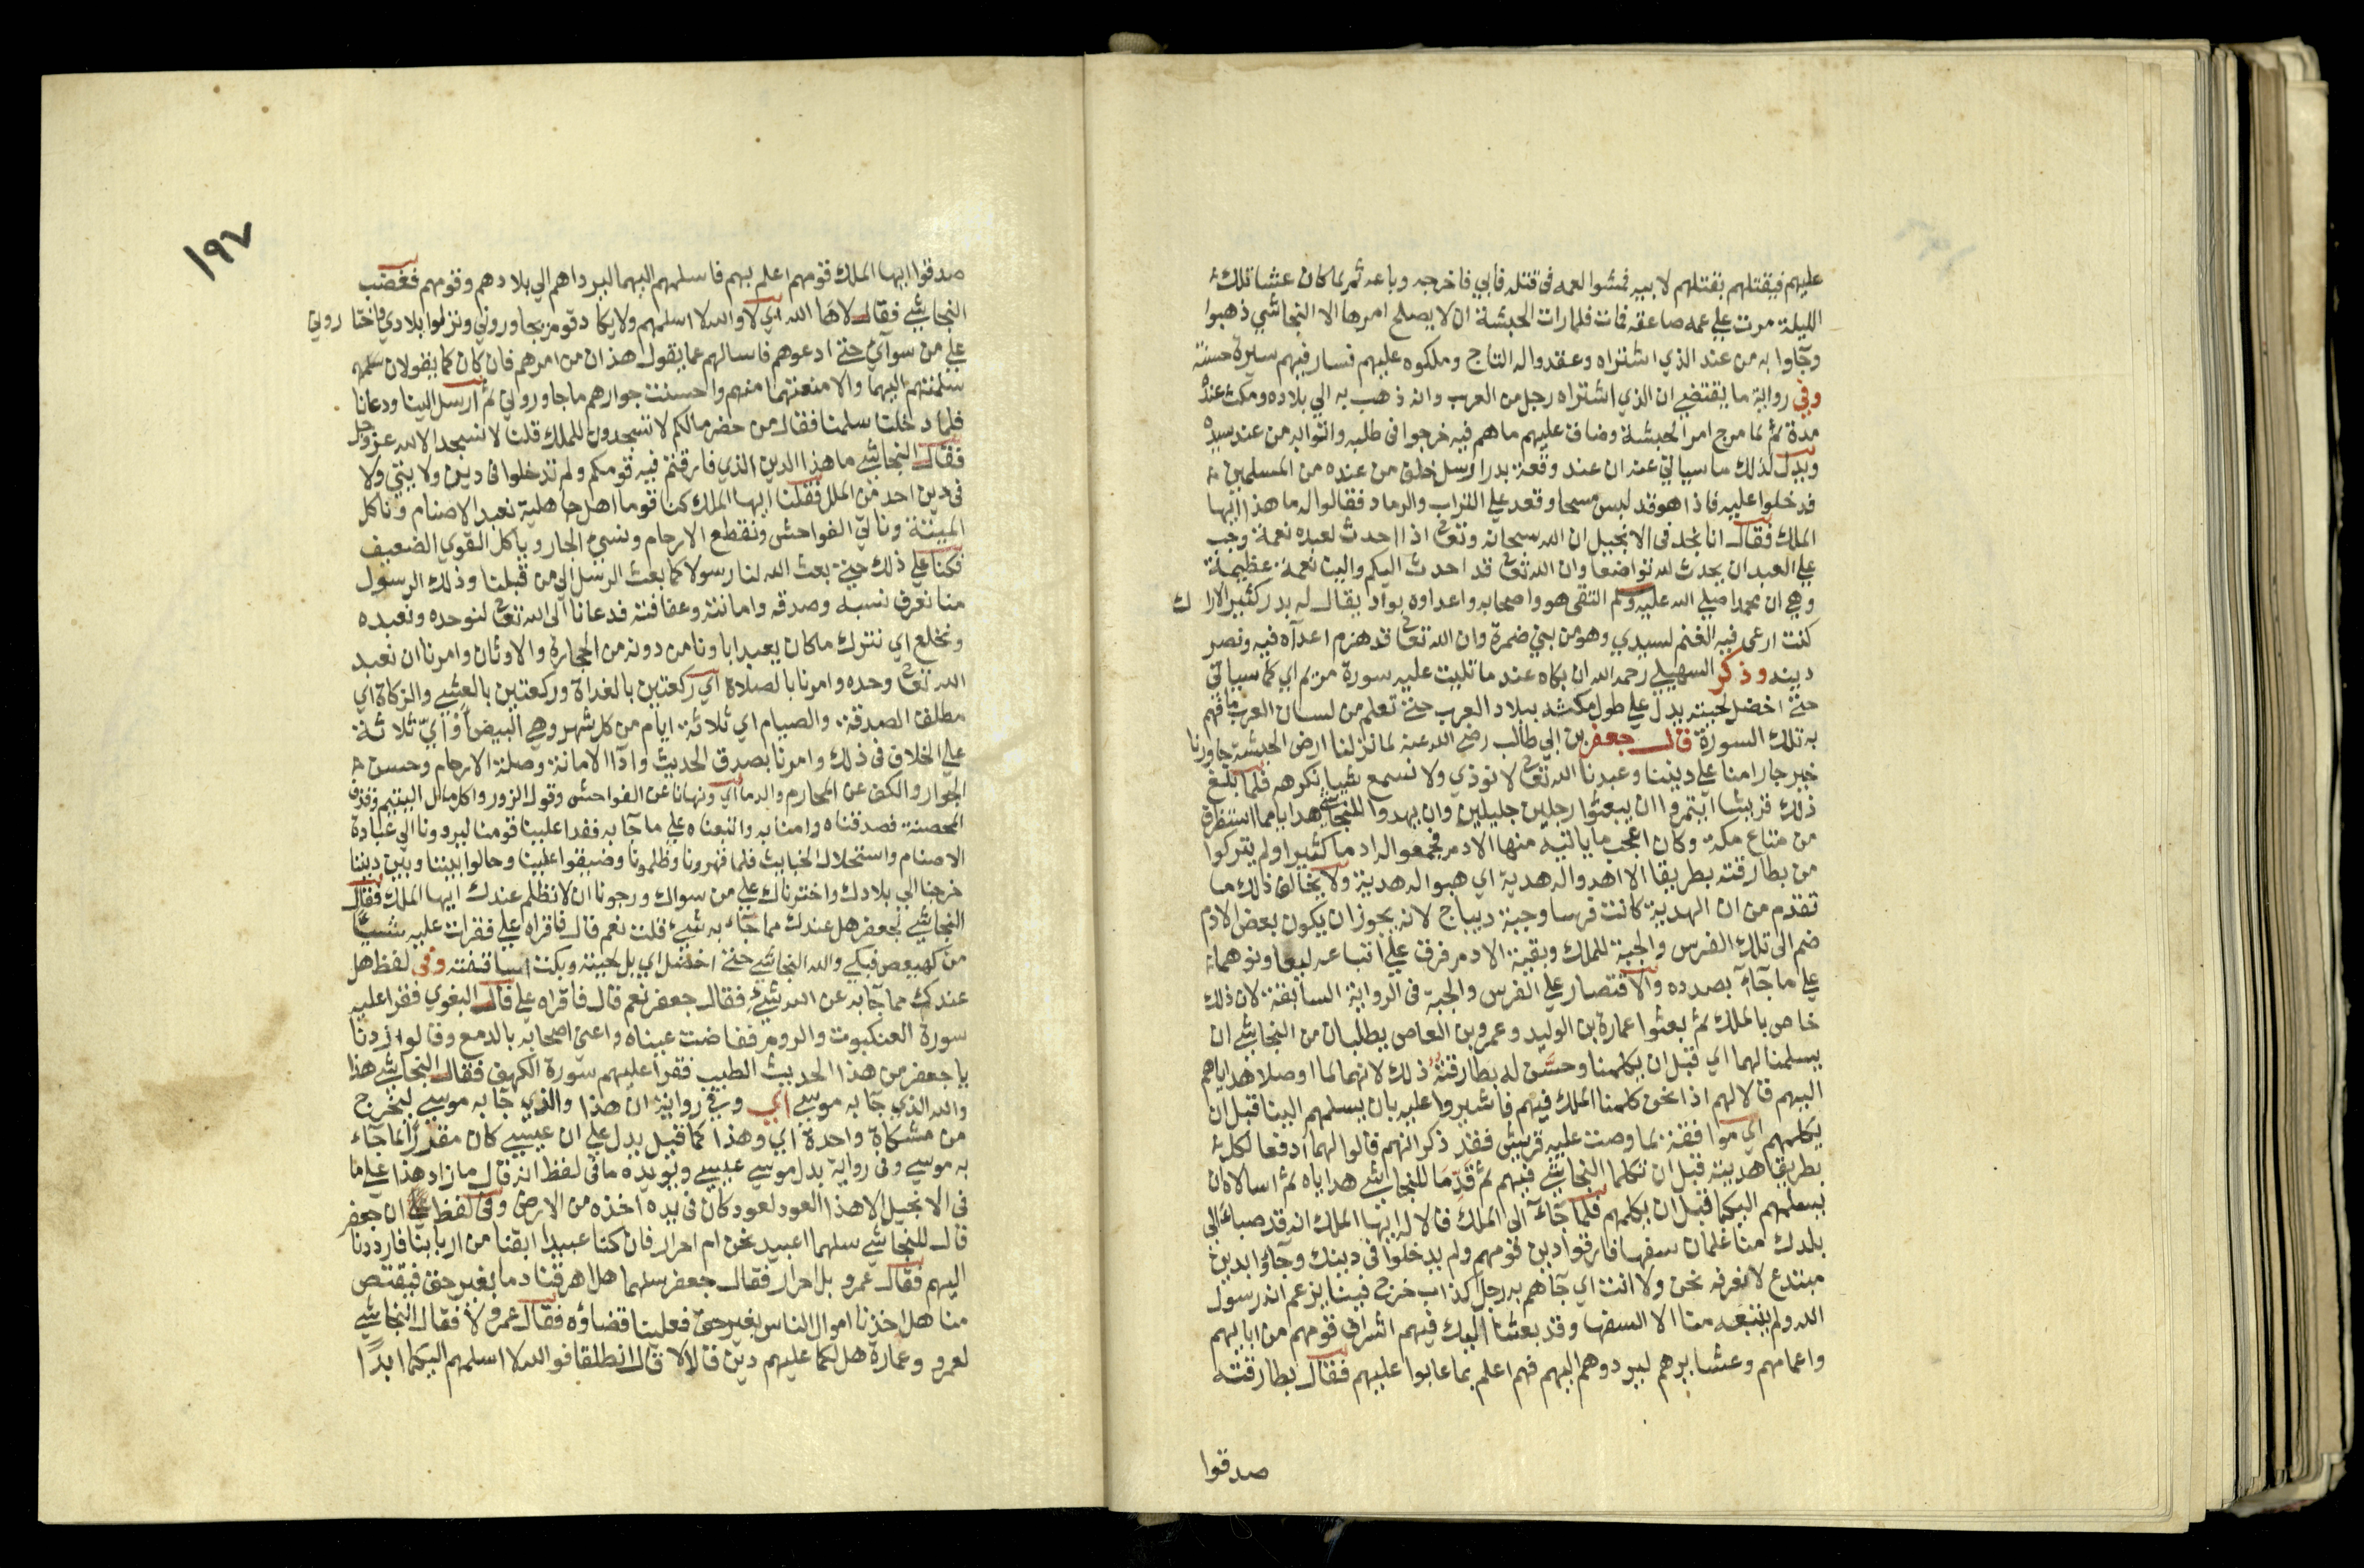 عليهم فيقتلهم بقتلهم لابيه فمشوا لعمه في قتله فابي فاخرجه وباعه ثم لما كان عشا تلك
الليلة مرت علي عمه صاعقه فمات فلما رات الحبشة ان لا يصلح امرها الا النجاشي ذهبوا
وجآوا به من عند الذي اشتراه وعقدوا له التاج وملكوه عليهم فسار فيهم سيرة حسنة
وفي رواية ما يقتضي ان الذي اشتراه رجل من العرب وانه ذهب به الي بلاده ومكث عنده
مدة ثم لما مرج امر الحبشة وضاق عليهم ماهم فيه خرجوا في طلبه واتوا به من عند سيده
ويدل لذلك ما سياتي عنه ان عند وقعة بدر ارسل خلف من عنده من المسلمين
فدخلوا عليه فاذا هو قد لبس مسحا وقعد علي التراب والرماد فقالوا له ما هذا ايها
الملك فقال انا نجد في الانجيل ان الله سبحانه وتعالى اذا احدث لعبده نعمة وجب
علي العبد ان يحدث لله تواضعا وان الله تعالى قد احدث اليكم والينا نعمة عظيمة
وهي ان محمدا صلي الله عليه وسلم التقي هو واصحابه واعداوه بواد يقال له بدر كثير الاراك
كنت ارعى فيه الغنم لسيدي وهو من بني ضمرة وان الله تعالى قد هزم اعدآه فيه ونصر
دينه وذكر السهيلي رحمه الله ان بكاه عند ما تليت عليه سورة مريم اي كما سياتي
حتى اخضل لحيته يدل علي طول مكثه ببلاد العرب حتى تعلم من لسان العرب ما فهم
به تلك السورة قال جعفر بن ابي طالب رضي الله عنه لما نزلنا ارض الحبشة جاورنا
خير جار امنا علي ديننا وعبدنا الله تعالى لا نوذي ولا نسمع شيا نكرهه فلما بلغ
ذلك قريشا ايتمروا ان يبعثوا رجلين جليلين وان يهدوا للنجاشي هدايا مما استظرف
من متاع مكة وكان اعجب ما ياتيه منها الادم فجمعوا له ادما كثيرا ولم يتركوا
من بطارقته بطريقا الا اهدوا له هدية اي هبوا له هدية ولا يخالف ذلك ما
تقدم من ان الهدية كانت فرسا وجبة ديباج لانه يجوز ان يكون بعض الادم
ضم الى تلك الفرس والجبة للملك وبقية الادم فرق علي اتباعه ليعاونوهما
علي ما جآآ بصدده والاقتصار علي الفرس والجبة في الرواية السابقة لان ذلك
خاص بالملك ثم بعثوا عمارة بن الوليد وعمرو بن العاص يطلبان من النجاشي ان
يسلمنا لهما اي قبل ان يكلمنا وحسّن له بطارقته ذلك لانهما لما اوصلا هداياهم
اليهم قالا لهم اذا نحن كلمنا الملك فيهم فاشيروا عليه بان يسلمهم الينا قبل ان
يكلمهم اي موافقة لما وصت عليه قريش فقد ذكر انهم قالوا لهما ادفعا لكل
بطريق هديته قبل ان تكلما النجاشي فيهم ثم قدّما للنجاشي هداياه ثم اسالاه ان
يسلمهم اليكما قبل ان يكلمهم فلما جآآ الى الملك قالا له ايها الملك انه قد صبا الي
بلدك منا غلمان سفها فارقوا دين قومهم ولم يدخلوا في دينك وجآوا بدين
مبتدع لا نعرفه نحن ولا انت اي جآهم به رجل كذاب خرج فينا يزعم انه رسول
الله ولم يتبعه منا الا السفها وقد بعثنا اليك فيهم اشراف قومهم من ابايهم
واعمامهم وعشايرهم ليردوهم اليهم فهم اعلم بما عابوا عليهم فقال بطارقته
صدقوا
١٩٧
صدقوا ايها الملك قومهم اعلم بهم فاسلمهم اليهما ليرداهم الي بلادهم وقومهم فغضب
النجاشي فقال لاها الله اي لا والله لا اسلمهم ولا يكاد قوم جاوروني ونزلوا بلادي فاختاروني
علي من سوآي حتى ادعوهم فاسالهم عما يقول هذان من امرهم فان كان كما يقولان
سلمتهم اليهما والا منعتهما منهم واحسنت جوارهم ما جاوروني ثم ارسل الينا ودعانا
فلما دخلنا سلمنا فقال من حضر مالكم لا تسجدون للملك قلنا لا نسجد الا لله عز وجل
فقال النجاشي ما هذا الدين الذي فارقتم فيه قومكم ولم تدخلوا في ديني ولا
في دين احد من الملل فقلنا ايها الملك كنا قوما اهل جاهلية نعبد الاصنام وناكل
الميتة وناتي الفواحش ونقطع الارحام ونسي الجار وياكل القوي الضعيف
فكنا علي ذلك حتى بعث الله لنا رسولا كما بعث الرسل الي من قبلنا وذلك الرسول
منا نعرف نسبه وصدقه وامانته وعفافته فدعانا الى الله تعالى لنوحده ونعبده
ونخلع اي نترك ما كان يعبد اباونا من دونه من الحجارة والاوثان وامرنا ان نعبد
الله تعالى وحده وامرنا بالصلاة اي ركعتين بالغداة وركعتين بالعشي والزكاة اي
مطلق الصدقة والصيام اي ثلاثة ايام من كل شهر وهي البيض او اي ثلاثة
علي الخلاف في ذلك وامرنا بصدق الحديث وادآ الامانة وصلة الارحام وحسن
الجوار والكف عن المحارم والدما اي ونهانا عن الفواحش وقول الزور واكل مال اليتيم وقذف
المحصنة فصدقناه وامنا به واتبعناه علي ما جآ به فعدا علينا قومنا ليردونا الى عبادة
الاصنام واستحلال الخبايث فلما قهرونا وظلمونا وضيقوا علينا وحالوا بيننا وبين ديننا
خرجنا الي بلادك واخترناك علي من سواك ورجونا ان لا نظلم عندك ايها الملك فقال
النجاشي لجعفر هل عندك مما جآء به شيء قلت نعم قال فاقراه علي فقرات عليه شيًا
من كهيعص فبكي والله النجاشي حتى اخضل اي بل لحيته وبكت اساقفته وفي لفظ هل
عندك مما جآ به عن الله شيء فقال جعفر نعم قال فاقراه علي قال البغوي فقرا عليه
سورة العنكبوت والروم ففاضت عيناه واعين اصحابه بالدمع وقالوا زدنا
يا جعفر من هذا الحديث الطيب فقرا عليهم سورة الكهف فقال النجاشي هذا
والله الذي جآ به موسي اي وفي رواية ان هذا والذي جآ به موسي ليخرج
من مشكاة واحدة اي وهذا كما قيل يدل علي ان عيسي كان مقررا لما جآء
به موسي وفي رواية بدل موسي عيسي ويويده ما في لفظ انه قال ما زاد هذا علي ما
في الانجيل الا هذا العود لعود كان في يده اخذه من الارض وفي لفظ ان جعفر
قال للنجاشي سلهما اعبيد نحن ام احرار فان كنا عبيدا ابقنا من اربابنا فارددنا
اليهم فقال عمرو بل احرار فقال جعفر سلهما هل اهرقنا دما بغير حق فيقتص
منا هل اخذنا اموال الناس بغير حق فعلينا قضاؤه فقال عمرو لا فقال النجاشي
لعمرو وعمارة هل لكما عليهم دين قالا لا قال انطلقا فوالله لا اسلمهم اليكما ابدًا